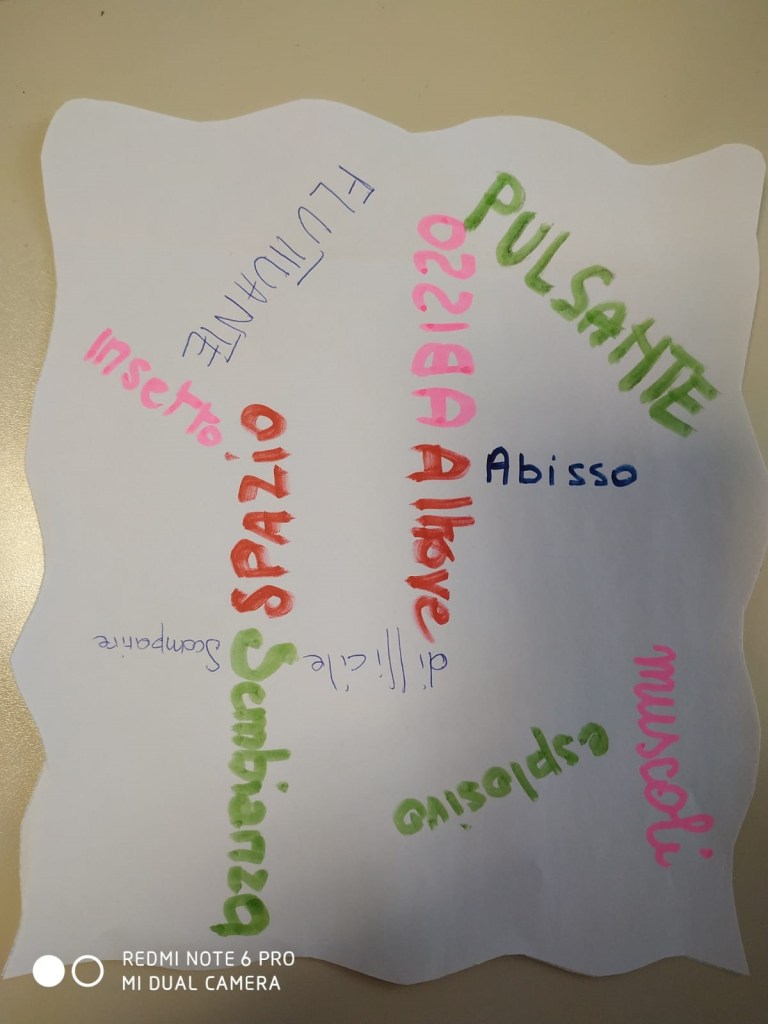 PULSANTE
FLUTTUANTE
ABISSO
Insetto
SPAZIO
Altrove
Abisso
Scomparire
difficile
Sembianza
muscoli
esplosivo
REDMI NOTE 6 PRO
MI DUAL CAMERA